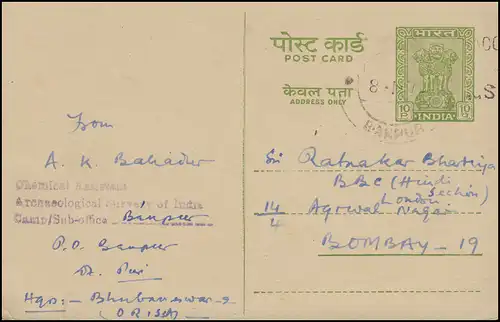 पोस्ट कार्ड
POST CARD
केवल पता
ADDRESS ONLY
भारत
10
10
INDIA
8
BANPUR
From
A. K. Bahadur
Chemical Assistant
Archaeological Survey of India
Camp/Sub-office Banpur
P.O. Banpur
Dt. Puri
Hqrs:- Bhubaneswar-2
(ORISSA)
Sri Ratnakar Bhartiya
BBC (Hindi
Section)
London
14/4 Agrwal Nagar
BOMBAY - 19